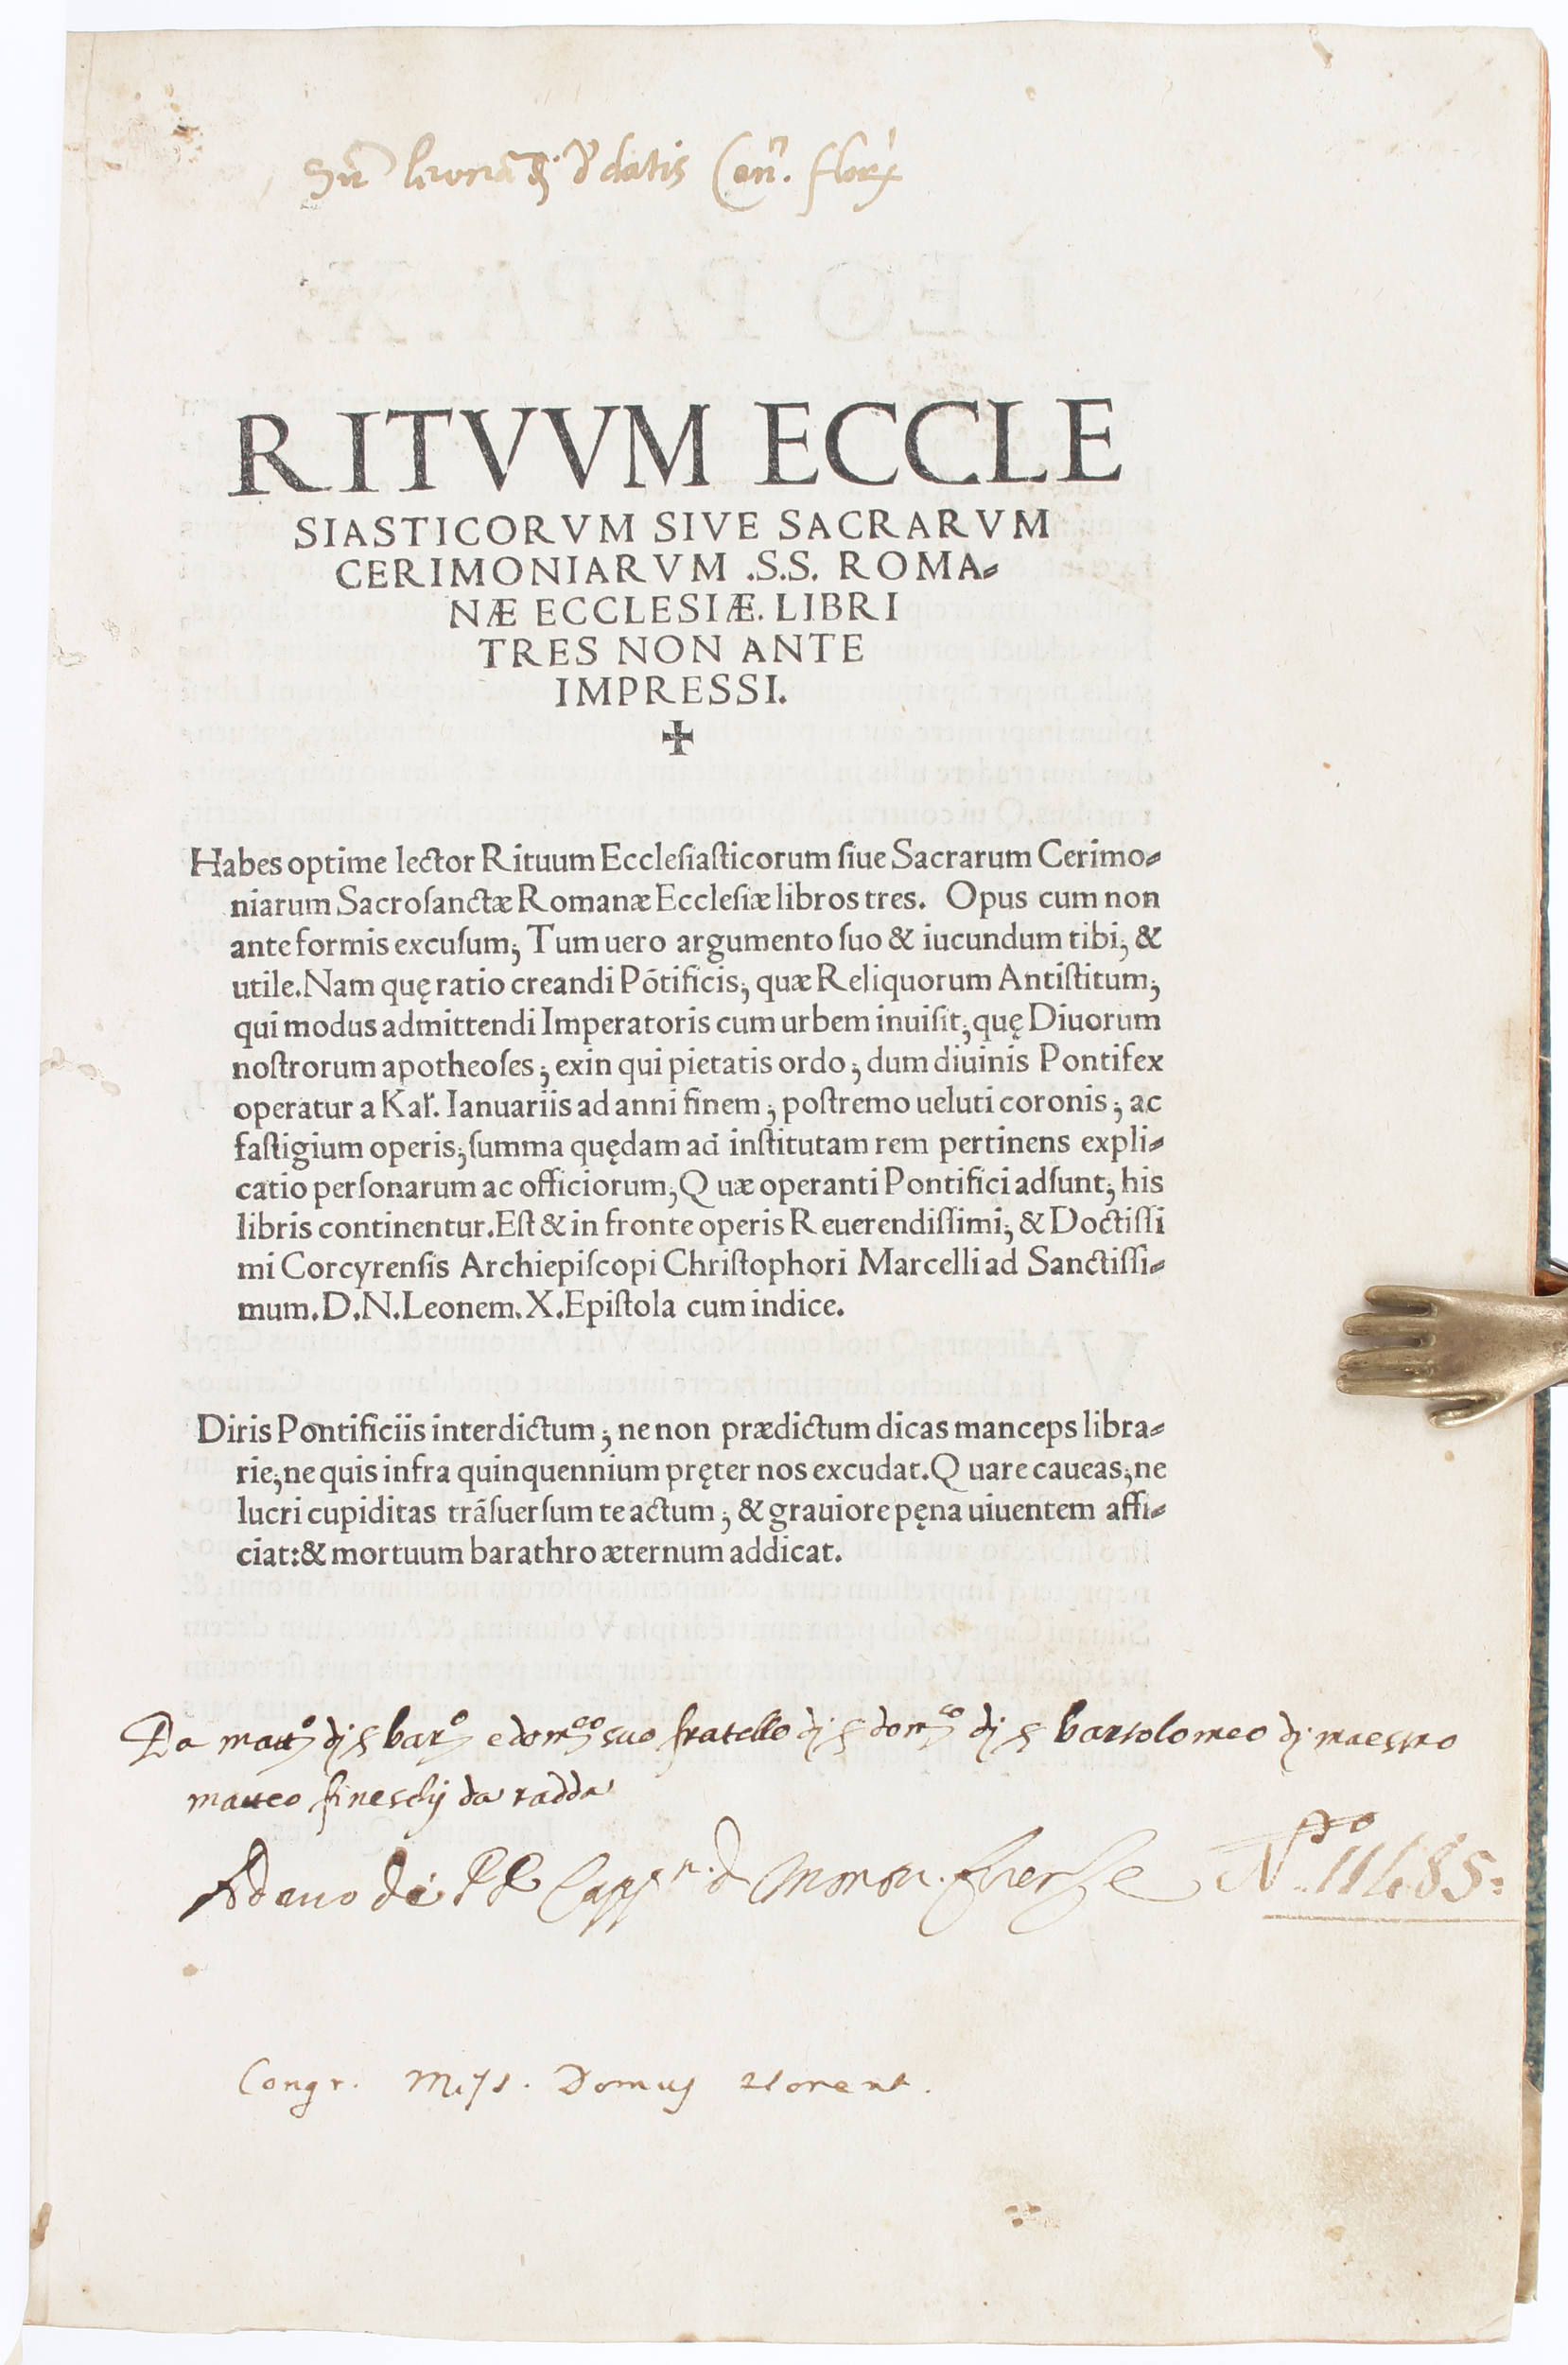 datis Can. flor
RITVVM ECCLE
SIASTICORVM SIVE SACRARVM
CERIMONIARVM .S.S. ROMA⸗
NÆ ECCLESIÆ. LIBRI
TRES NON ANTE
IMPRESSI.
✠
Habes optime lector Rituum Eccleſiaſticorum ſiue Sacrarum Cerimo⸗
niarum Sacroſanctæ Romanæ Eccleſiæ libros tres. Opus cum non
ante formis excuſum; Tum uero argumento ſuo & iucundum tibi; &
utile. Nam quę ratio creandi Põtificis; quæ Reliquorum Antiſtitum;
qui modus admittendi Imperatoris cum urbem inuiſit; quę Diuorum
noſtrorum apotheoſes; exin qui pietatis ordo; dum diuinis Pontifex
operatur a Kal̃. Ianuariis ad anni finem; poſtremo ueluti coronis; ac
faſtigium operis; ſumma quędam ad inſtitutam rem pertinens expli⸗
catio perſonarum ac officiorum; Quæ operanti Pontifici adſunt; his
libris continentur. Eſt & in fronte operis Reuerendiſſimi; & Doctiſſi
mi Corcyrenſis Archiepiſcopi Chriſtophori Marcelli ad Sanctiſſi⸗
mum. D. N. Leonem. X. Epiſtola cum indice.
Diris Pontificiis interdictum; ne non prædictum dicas manceps libra⸗
rie; ne quis infra quinquennium pręter nos excudat. Quare caueas; ne
lucri cupiditas trãſuerſum te actum; & grauiore pęna uiuentem affi⸗
ciat: & mortuum barathro æternum addicat.
Da matt.o dj s bar.o e dom.co suo fratello dj s dom.co dj s bartolomeo dj maestro
matteo fineschj da radda
di PP Capp.ni N.o 11485:
Congr. Miss. Domus Florent.